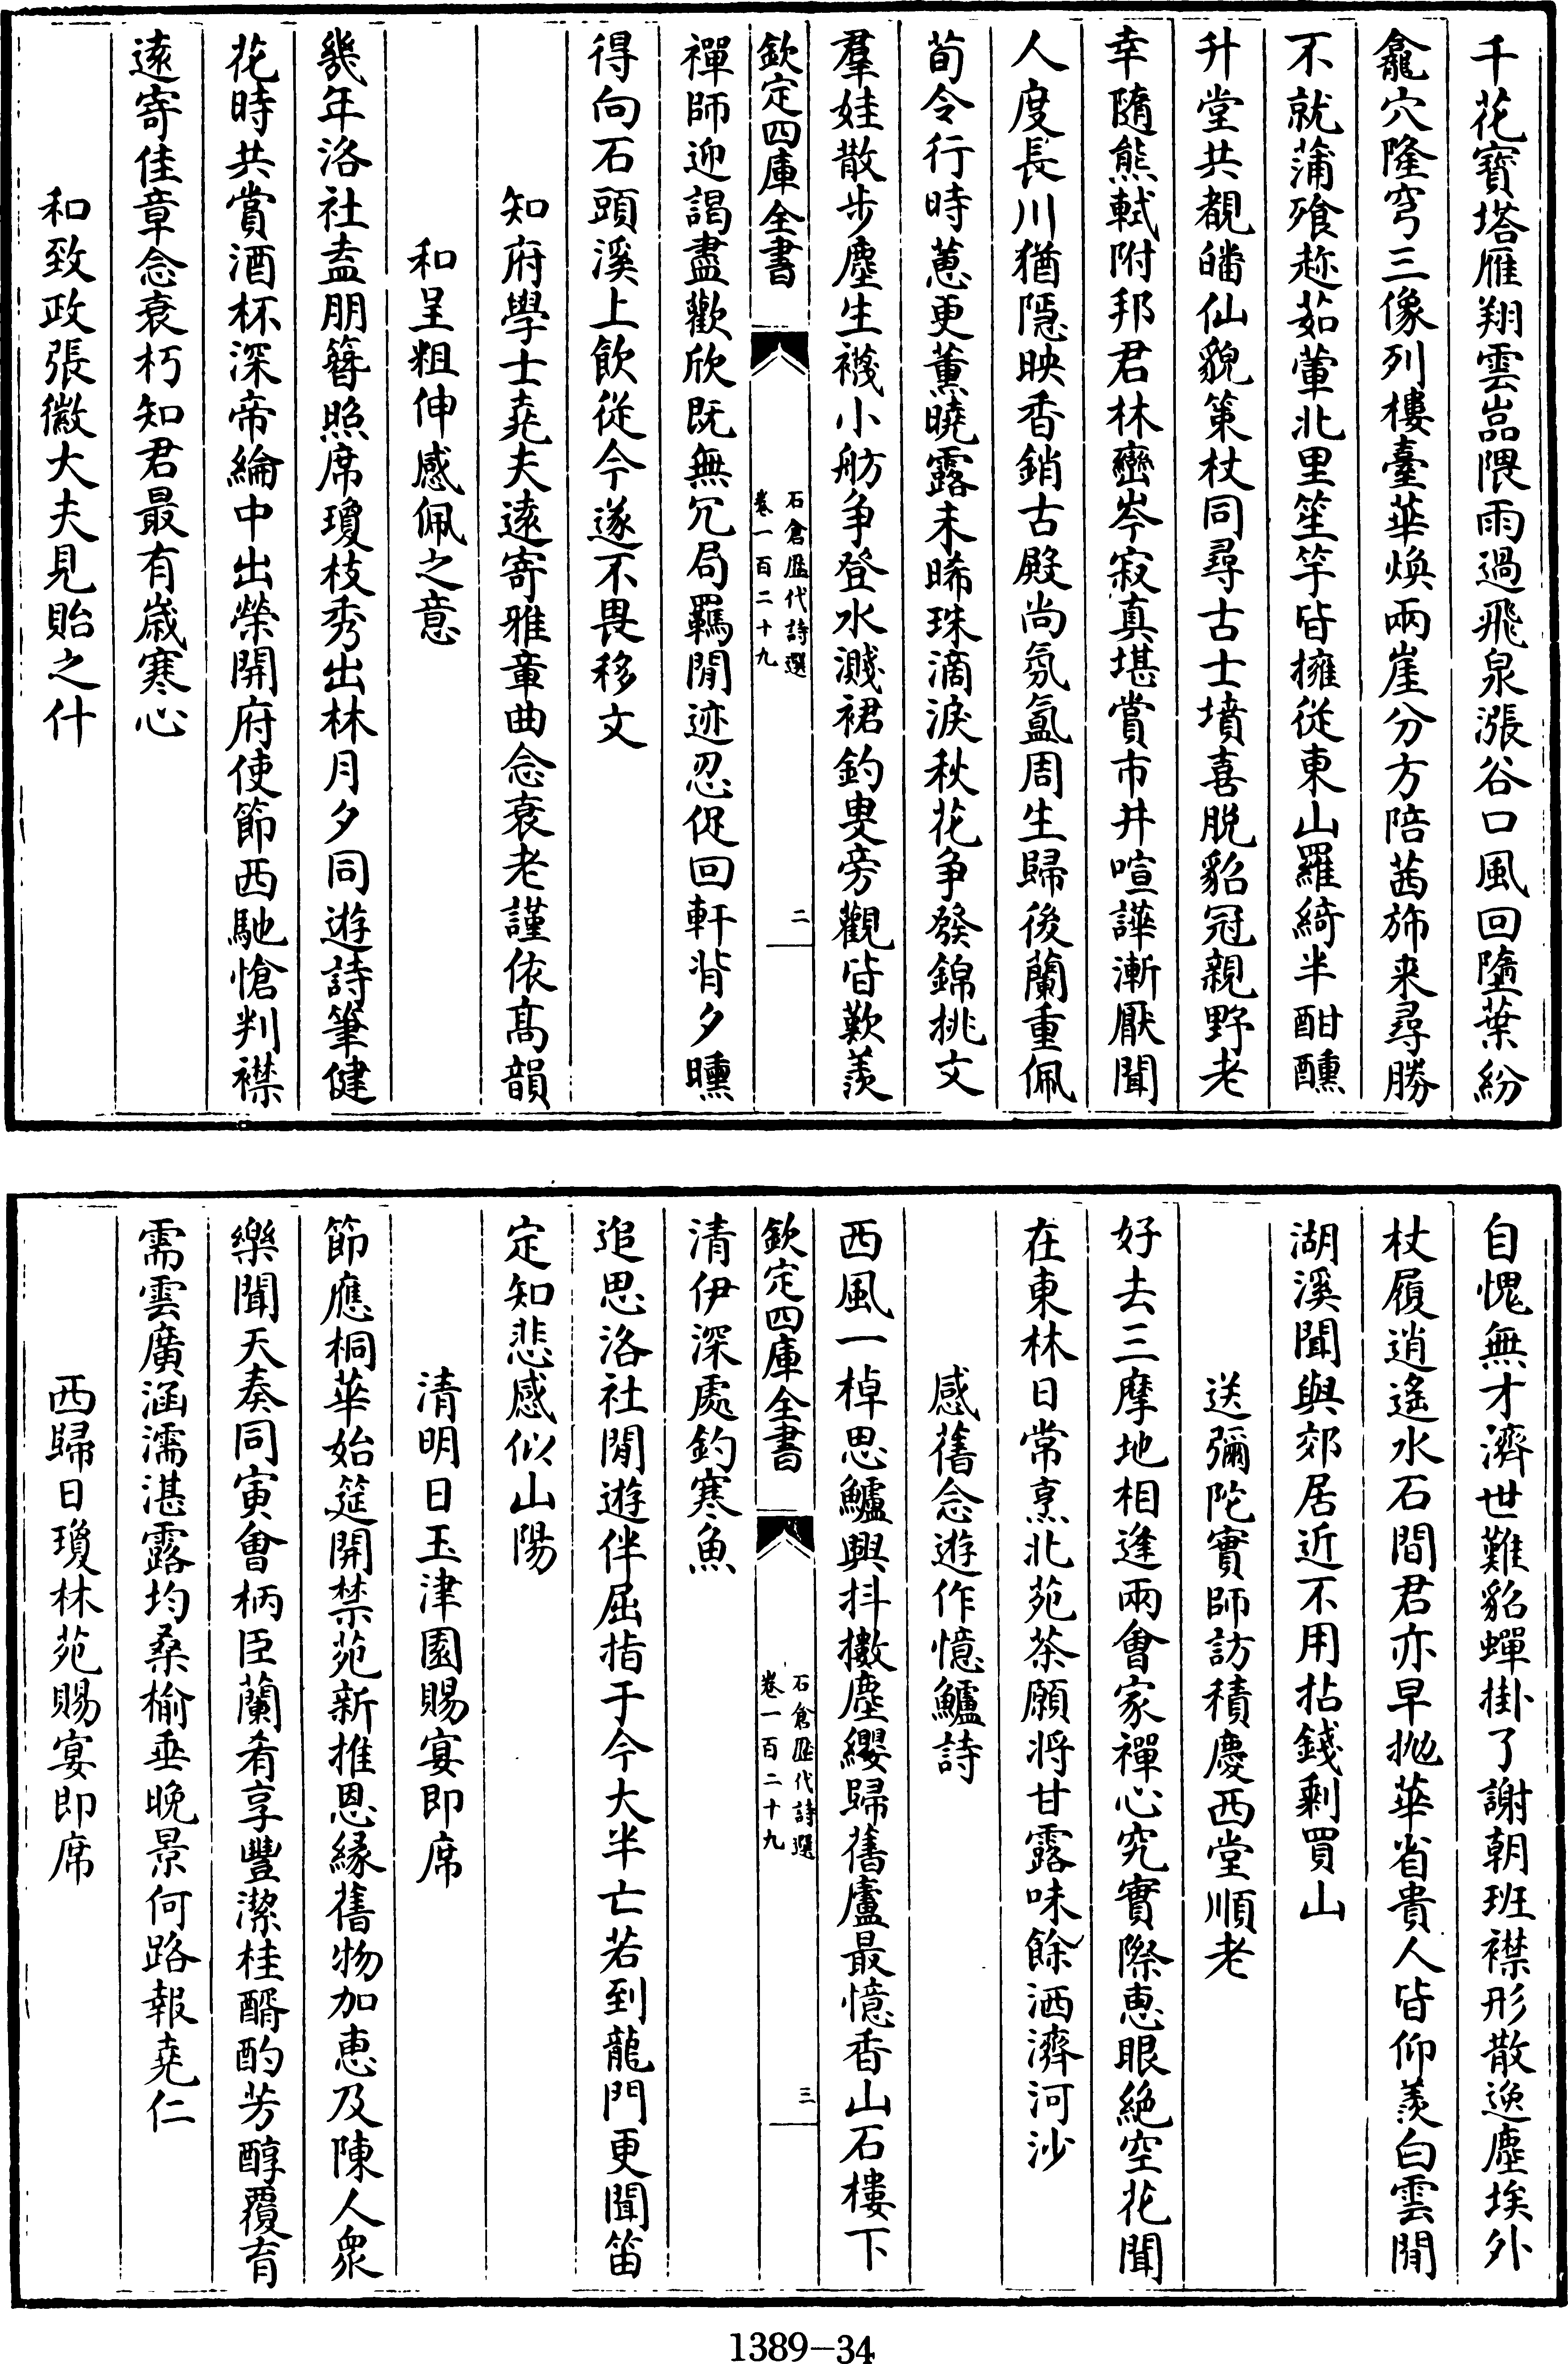 千花寶塔雁翔雲嵓隈雨過飛泉漲谷口風回墮葉紛
龕穴隆穹三像列樓臺華煥兩崖分方陪茜斾来尋勝
不就蒲飱趂茹葷北里笙竽皆擁從東山羅綺半酣醺
升堂共覩皤仙貌策杖同尋古士墳喜脱貂冠親野老
幸隨熊軾附邦君林巒岑寂真堪賞市井喧譁漸厭聞
人度長川猶隱映香銷古殿尚氛氳周生歸後蘭重佩
荀令行時蕙更薫曉露未晞珠滴淚秋花争發錦挑文
羣娃散步塵生襪小舫争登水濺裙釣叟旁觀皆歎羨
欽定四庫全書
石倉歷代詩選
卷一百二十九
二
禪師迎謁盡歡欣既無冗局羈閒迹忍促回軒背夕曛
得向石頭溪上飲從今遂不畏移文
知府學士堯夫遠寄雅章曲念衰老謹依髙韻
和呈粗伸感佩之意
幾年洛社盍朋簪照席瓊枝秀出林月夕同遊詩筆健
花時共賞酒杯深帝綸中出榮開府使節西馳愴判襟
遠寄佳章念衰朽知君最有歳寒心
和致政張徽大夫見貽之什
自愧無才濟世難貂蟬掛了謝朝班襟形散逸塵埃外
杖履逍遙水石間君亦早抛華省貴人皆仰羨白雲閒
湖溪聞與郊居近不用拈錢剩買山
送彌陀實師訪積慶西堂順老
好去三摩地相逢兩㑹家禪心究實際恵眼絶空花聞
在東林日常烹北苑茶願将甘露味餘洒濟河沙
感舊念遊作憶鱸詩
西風一棹思鱸興抖擻塵纓歸舊廬最憶香山石樓下
欽定四庫全書
石倉歷代詩選
卷一百二十九
三
清伊深處釣寒魚
追思洛社閒遊伴屈指于今大半亡若到龍門更聞笛
定知悲感似山陽
清明日玉津園賜宴即席
節應桐華始筵開禁苑新推恩緣舊物加恵及陳人衆
樂聞天奏同寅㑹柄臣蘭肴享豐潔桂醑酌芳醇覆育
需雲廣涵濡湛露均桑榆垂晩景何路報堯仁
西歸日瓊林苑賜宴即席
1389-34